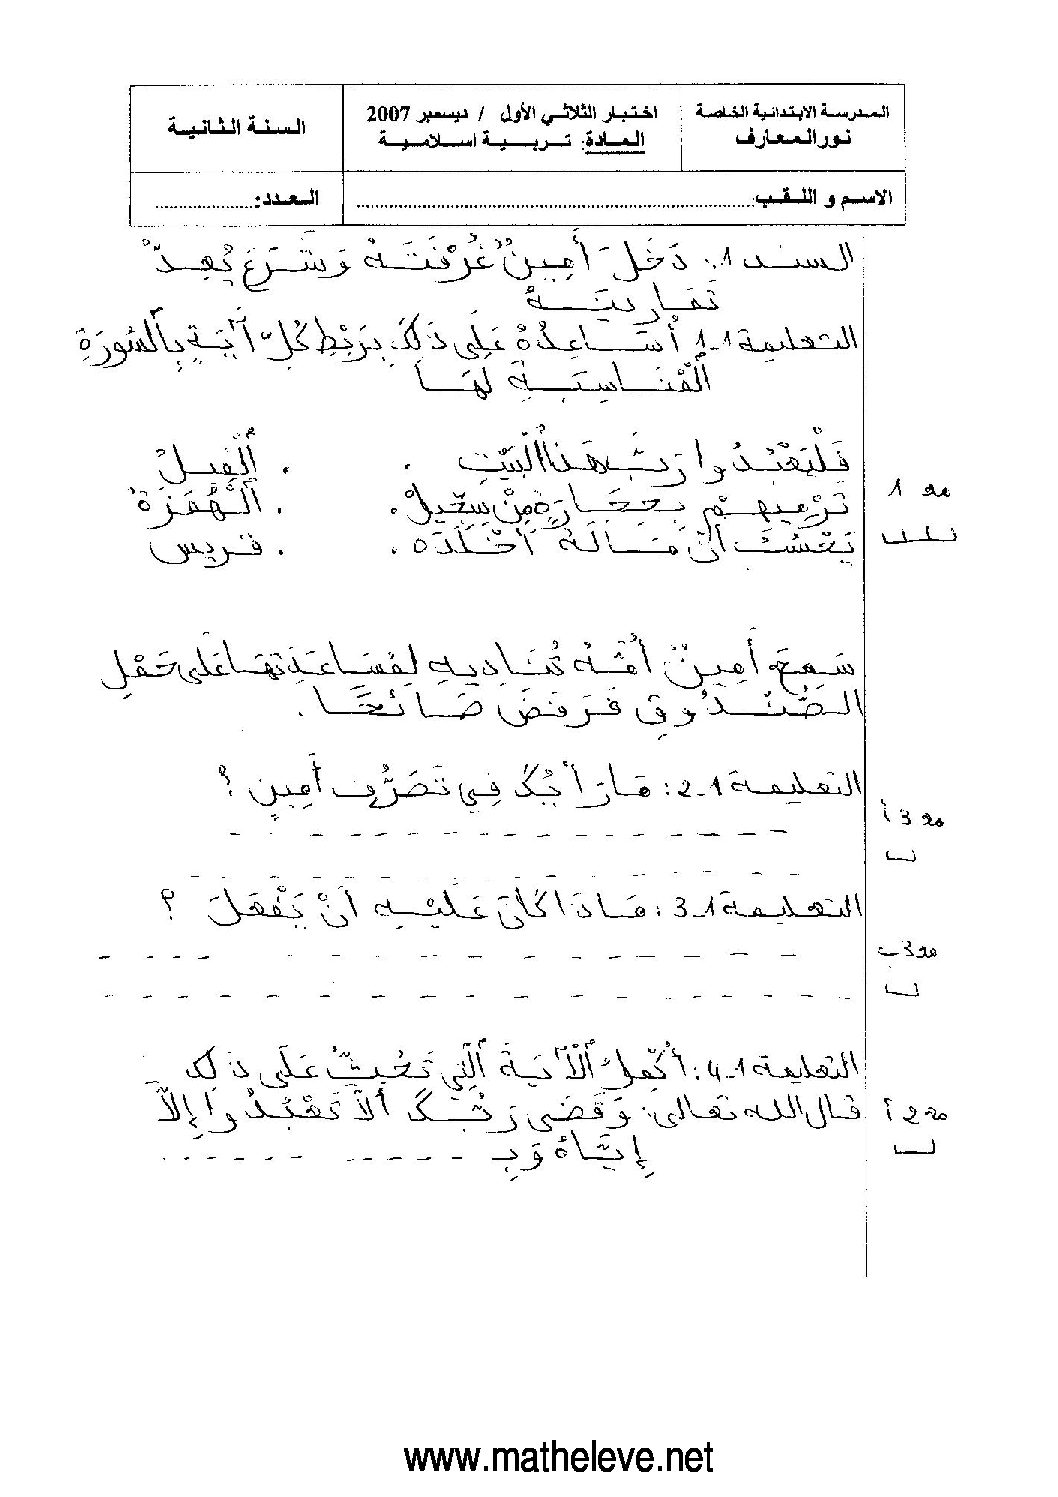 المدرسة الابتدائية الخاصة
نور المعارف
اختبار الثلاثي الأول / ديسمبر 2007
المادة: تربية اسلامية
السنة الثانية
الاسم و اللقب:
العدد:
السند 1: دَخَلَ أَمِينٌ غُرْفَتَهُ وَشَرَعَ يُعِدُّ
تَمَارِينَهُ
التعليمة 1-1 أُسَاعِدُهُ عَلَى ذَلِكَ بِرَبْطِ كُلِّ آيَةٍ بِالسُّورَةِ
الْمُنَاسِبَةِ لَهَا
فَلْيَعْبُدُوا رَبَّ هَذَا الْبَيْتِ . . الْفِيلُ
تَرْمِيهِمْ بِحِجَارَةٍ مِنْ سِجِّيلٍ . . الْهُمَزَةُ
يَحْسَبُ أَنَّ مَالَهُ أَخْلَدَه . . قريش
مع 1
سَمِعَ أَمِينٌ أُمَّهُ تُنَادِيهِ لِمُسَاعَدَتِهَا عَلَى حَمْلِ
الصُّنْدُوقِ فَرَفَضَ صَائِحًا .
التعليمة 1-2 : مَا رَأْيُكَ فِي تَصَرُّفِ أَمِينٍ ؟
مع 3 أ
التعليمة 1-3 : مَاذَا كَانَ عَلَيْهِ أَنْ يَفْعَلَ ؟
مع 3 ب
التعليمة 1-4 : أُكْمِلُ الْآيَةَ الَّتِي تَحُثُّ عَلَى ذَلِكَ
قال الله تعالى: وَقَضَى رَبُّكَ أَلَّا تَعْبُدُوا إِلَّا
إِيَّاهُ وَبِـ
مع 2 أ
www.matheleve.net